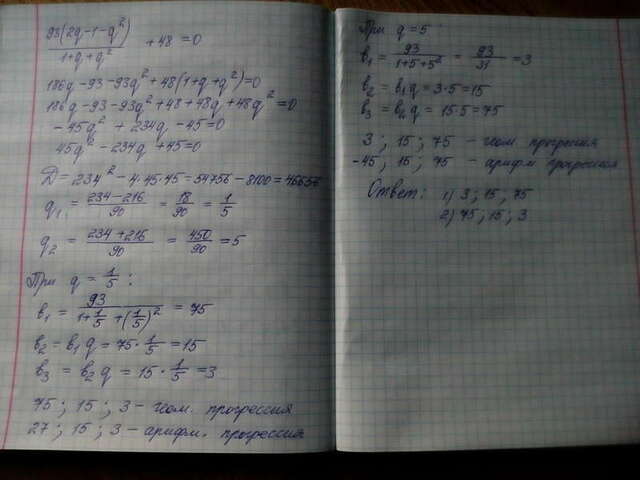 93(2q-1-q²)/(1+q+q²) + 48 = 0
186q-93-93q²+48(1+q+q²)=0
186q-93-93q²+48+48q+48q²=0
-45q²+234q-45=0
45q²-234q+45=0
D=234²-4·45·45=54756-8100=46656
q₁ = (234-216)/90 = 18/90 = 1/5
q₂ = (234+216)/90 = 450/90 = 5
При q = 1/5 :
b₁ = 93/(1+1/5+(1/5)²) = 75
b₂ = b₁q = 75·1/5 = 15
b₃ = b₂q = 15·1/5 = 3
75 ; 15 ; 3 – геом. прогрессия
27 ; 15 ; 3 – арифм. прогрессия
При q = 5
b₁ = 93/(1+5+5²) = 93/31 = 3
b₂ = b₁q = 3·5 = 15
b₃ = b₂q = 15·5 = 75
3 ; 15 ; 75 – геом. прогрессия
-45; 15; 75 – арифм прогрессия
Ответ: 1) 3; 15; 75
2) 75; 15; 3